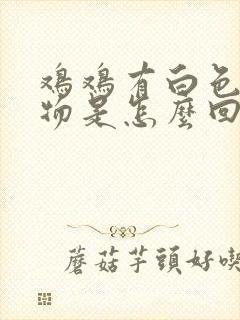 鸡鸡有白色
物是怎麼回
蘑菇芋頭好喫